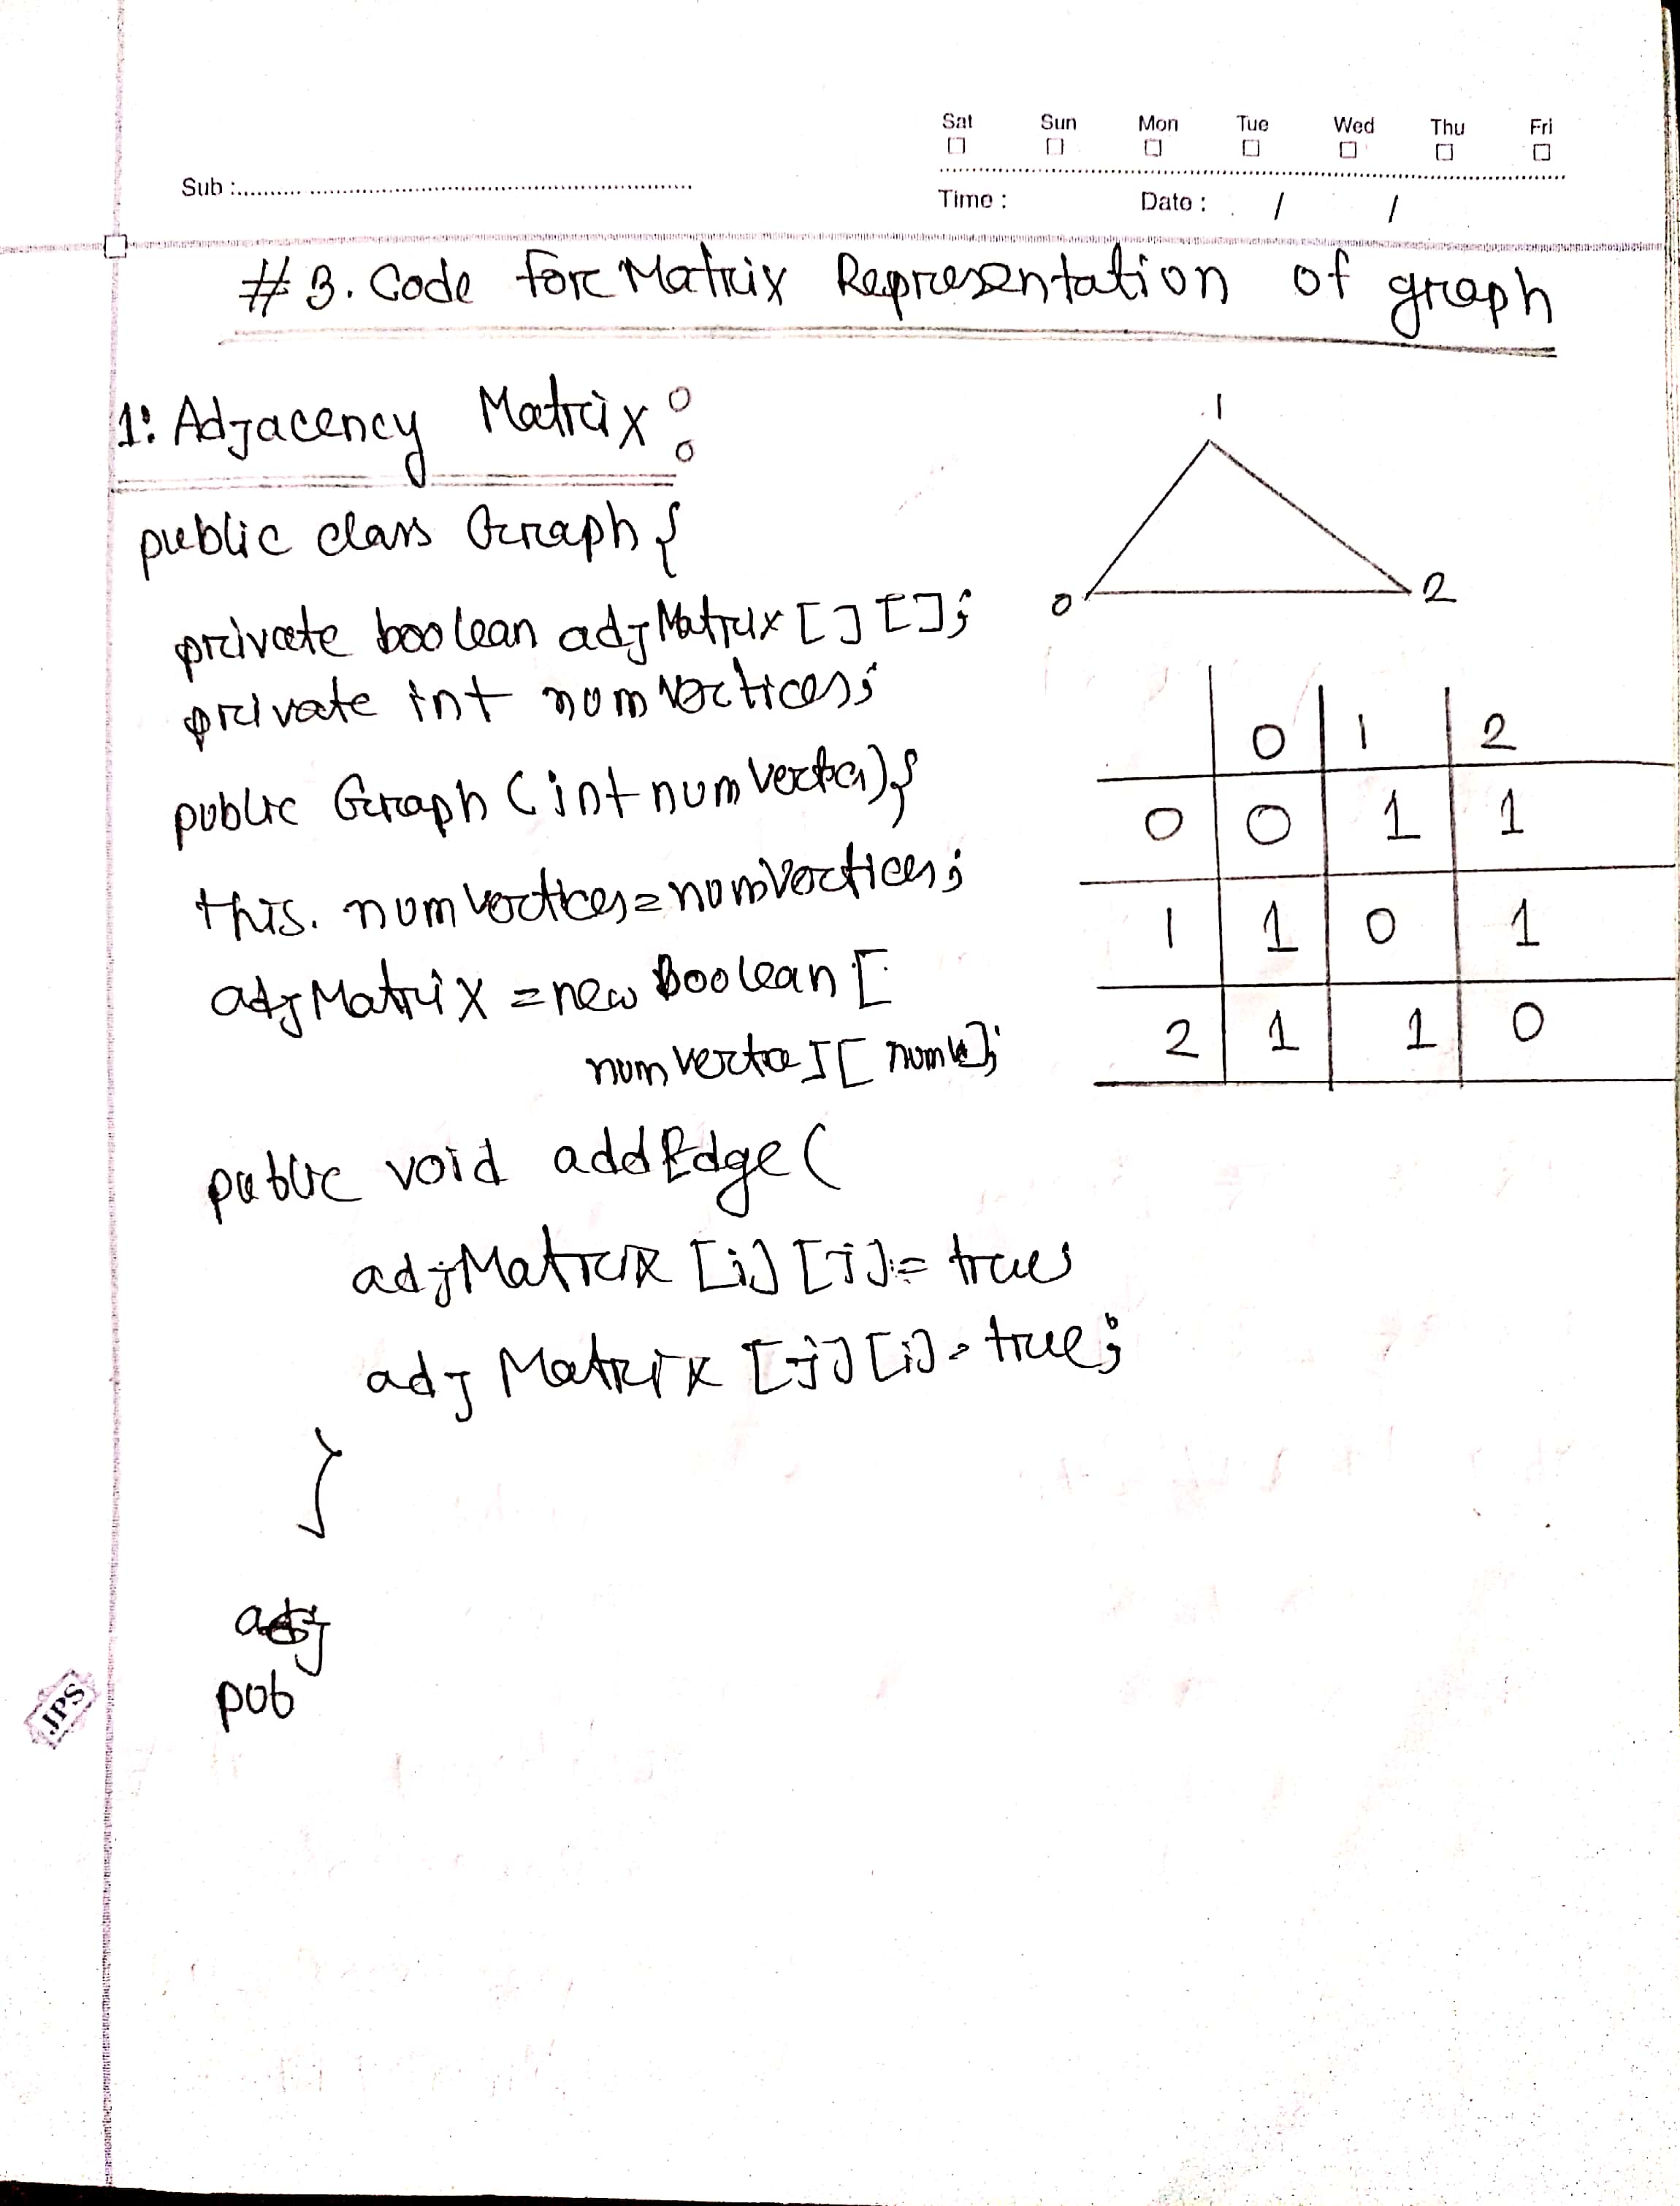 Sat Sun Mon Tue Wed Thu Fri
Sub :
Time : Date : / /
#3. Code for Matrix Representation of graph
1: Adjacency Matrix:
public class Graph {
private boolean adjMatrix [] [];
private int numVertices;
public Graph (int numVertices) {
this. numVertices = numVertices;
adjMatrix = new Boolean [
][ ];
public void addEdge (
adjMatrix [i] [j] = true
adj Matrix [j] [i] = true;
}
adj
pub
1
0 2
0 1 2
0 0 1 1
1 1 0 1
2 1 1 0
JPS